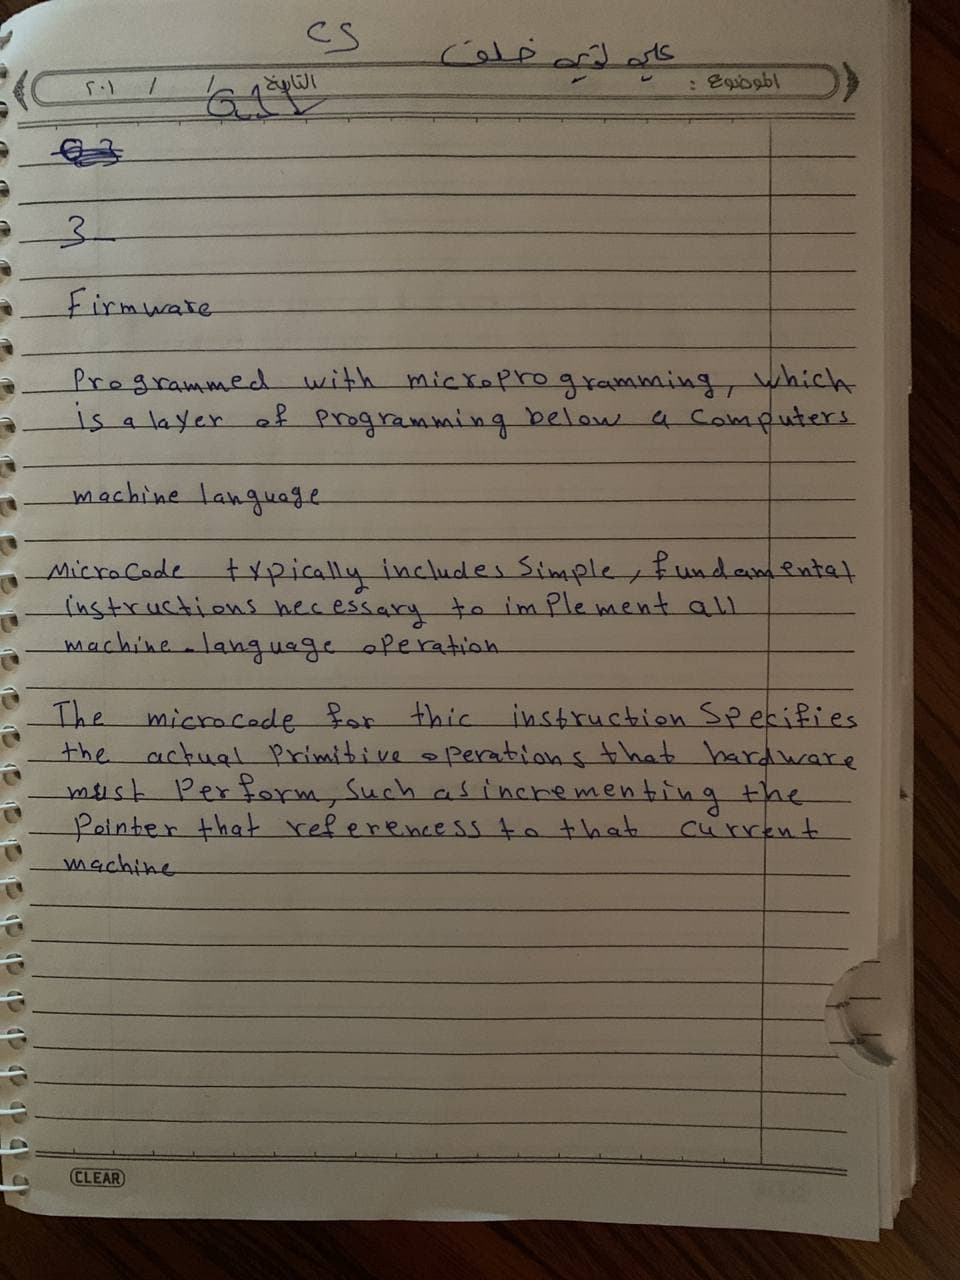 CS
خلف
الموضوع :
التاريخ / / ٢٠١
G11
3-
Firmware
Programmed with microprogramming, which
is a layer of programming below a computers
machine language
Microcode typically includes simple, fundamental
instructions necessary to implement all
machine-language operation
The microcode for thic instruction specifies
the actual primitive operations that hardware
must perform, such as incrementing the
pointer that referencess to that current
machine
CLEAR